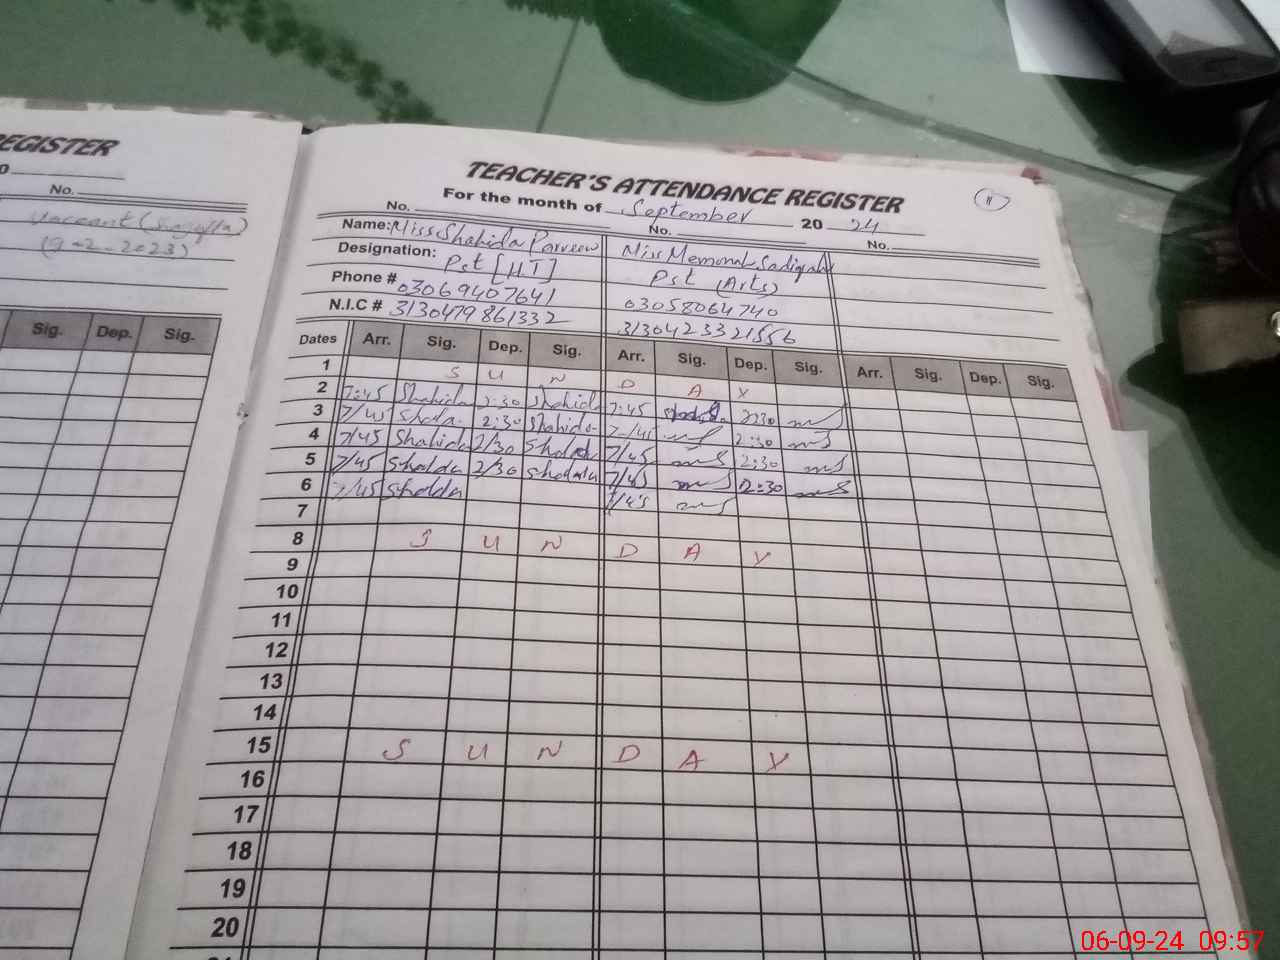 REGISTER
0
No.
(9-2-2023)
Sig. Dep. Sig.
TEACHER'S ATTENDANCE REGISTER
11
For the month of September 20 24
No. No. No.
Name: Miss Shahida Parveen Miss Memona Sadiqah
Designation: Pst [H.T] Pst (Arts)
Phone # 03069407641 03058064740
N.I.C # 3130479861332 3130423321556
Dates Arr. Sig. Dep. Sig. Arr. Sig. Dep. Sig. Arr. Sig. Dep. Sig.
1 S U N D A Y
2 7:45 Shahida 2:30 Shahida 7:45 2:30
3 7/45 2:30 Shahida 7/45 2:30
4 7/45 Shahida 2/30 7/45 2:30
5 7/45 2/30 7/45 2:30
6 7/45 7/45
7
8 S U N D A Y
9
10
11
12
13
14
15 S U N D A Y
16
17
18
19
20
06-09-24 09:57